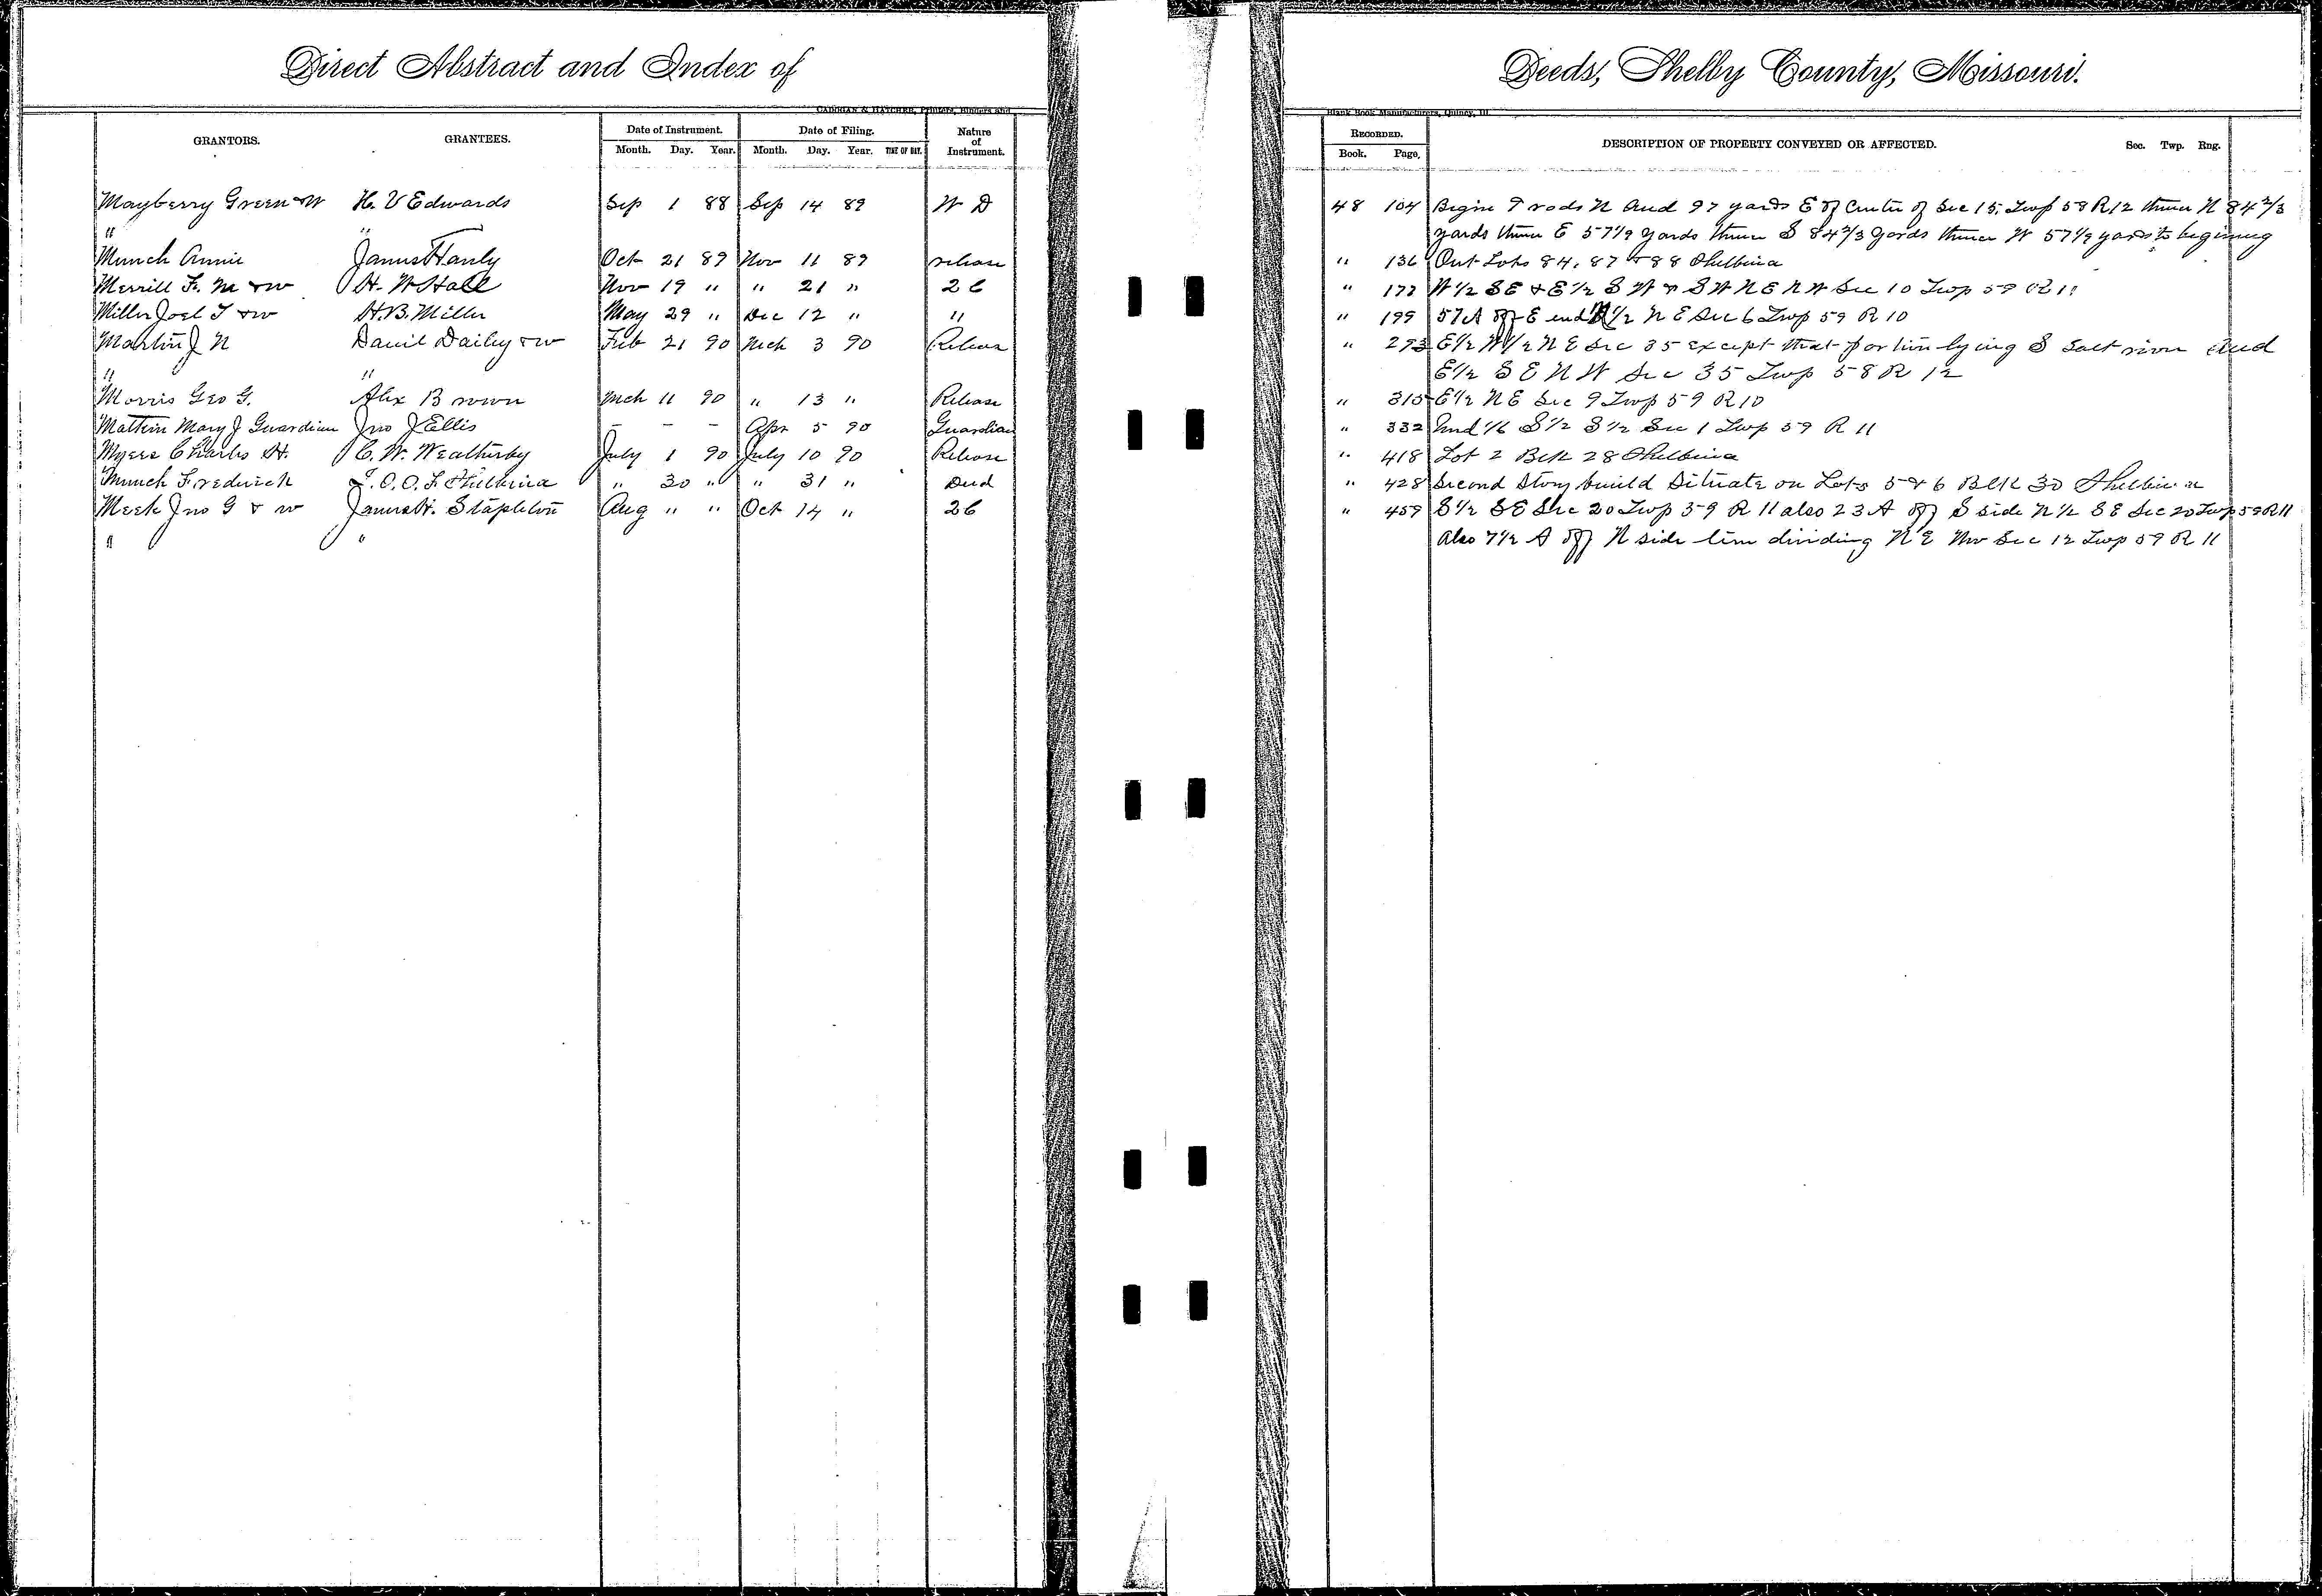 Direct Abstract and Index of Deeds, Shelby County, Missouri.
CADOGAN & HATCHER, Printers, Binders and Blank Book Manufacturers, Quincy, Ill.
GRANTORS. GRANTEES. Date of Instrument. Date of Filing. Nature of Instrument. RECORDED. DESCRIPTION OF PROPERTY CONVEYED OR AFFECTED. Sec. Twp. Rng.
Month. Day. Year. Month. Day. Year. TIME OF DAY. Book. Page.
Mayberry Green & W H. V Edwards Sep 1 88 Sep 14 89 W D 48 104 Begin 7 rods N and 97 yards E of Center of Sec 15. Twp 58 R12 thence N 84 2/3
" " yards thence E 57 1/9 yards thence S 84 2/3 yards thence W 57 1/9 yards to begining
Munch Annie James Hanly Oct 21 89 Nov 11 89 release " 136 Out Lots 84, 87 & 88 Shelbina
Merrill F. M & w H. W Hall Nov 19 " " 21 " 26 " 177 W 1/2 SE & E 1/2 S W & S W N E N W Sec 10 Twp 59 R 11
Miller Joel T & w H. B. Miller May 29 " Dec 12 " " " 199 57 A off E end N 1/2 N E Sec 6 Twp 59 R 10
Martin J N David Dailey & w Feb 21 90 Mch 3 90 Release " 293 E 1/2 W 1/2 N E Sec 35 except that portion lying S Salt river and
" " E 1/2 S E N W Sec 35 Twp 58 R 12
Morris Geo G. Alex Brown Mch 11 90 " 13 " Release " 315 E 1/2 N E Sec 9 Twp 59 R 10
Mary J Guardian Jno J Ellis - - - Apr 5 90 Guardian " 332 Und 1/6 S 1/2 S 1/2 Sec 1 Twp 59 R 11
Myers Charles H. C. W. Weatherby July 1 90 July 10 90 Release " 418 Lot 2 Blk 28 Shelbina
Munch Frederick I. O. O. F. Shelbina " 30 " " 31 " Deed " 428 Second Story build Situate on Lots 5 & 6 Blk 30 Shelbina
Meek Jno G & w James H. Stapleton Aug " " Oct 14 " 26 " 459 S 1/2 SE Sec 20 Twp 59 R 11 also 23 A off S side N 1/2 S E Sec 20 Twp 59 R 11
" " Also 7 1/2 A off N side line dividing N E Nw Sec 12 Twp 59 R 11